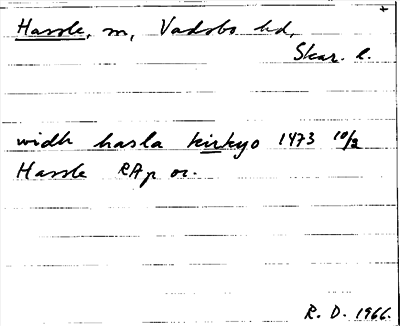 Hassle, m, Vadsbo hd,
Skar. l.
widh hasla kirkyo 1473 10/2
Hassle RAp or.
R. D. 1966.